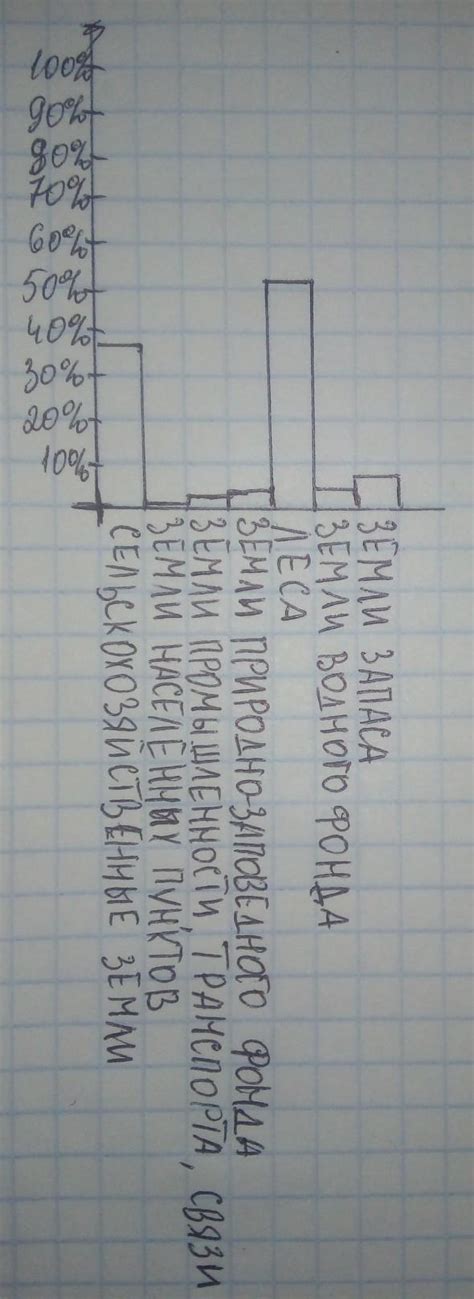 100%
90%
80%
70%
60%
50%
40%
30%
20%
10%
СЕЛЬСКОХОЗЯЙСТВЕННЫЕ ЗЕМЛИ
ЗЕМЛИ НАСЕЛЁННЫХ ПУНКТОВ
ЗЕМЛИ ПРОМЫШЛЕННОСТИ, ТРАНСПОРТА, СВЯЗИ
ЗЕМЛИ ПРИРОДНО-ЗАПОВЕДНОГО ФОНДА
ЛЕСА
ЗЕМЛИ ВОДНОГО ФОНДА
ЗЕМЛИ ЗАПАСА